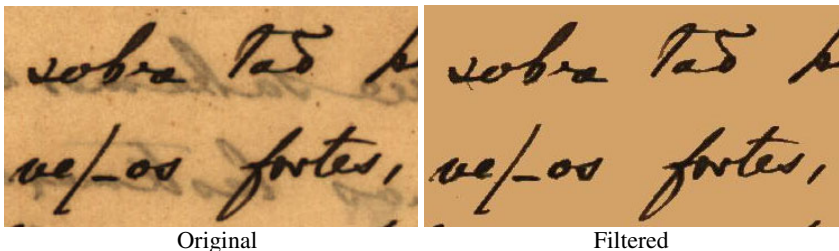 sobra taõ
ve/-os fortes,
Original
sobra taõ
ve/-os fortes,
Filtered